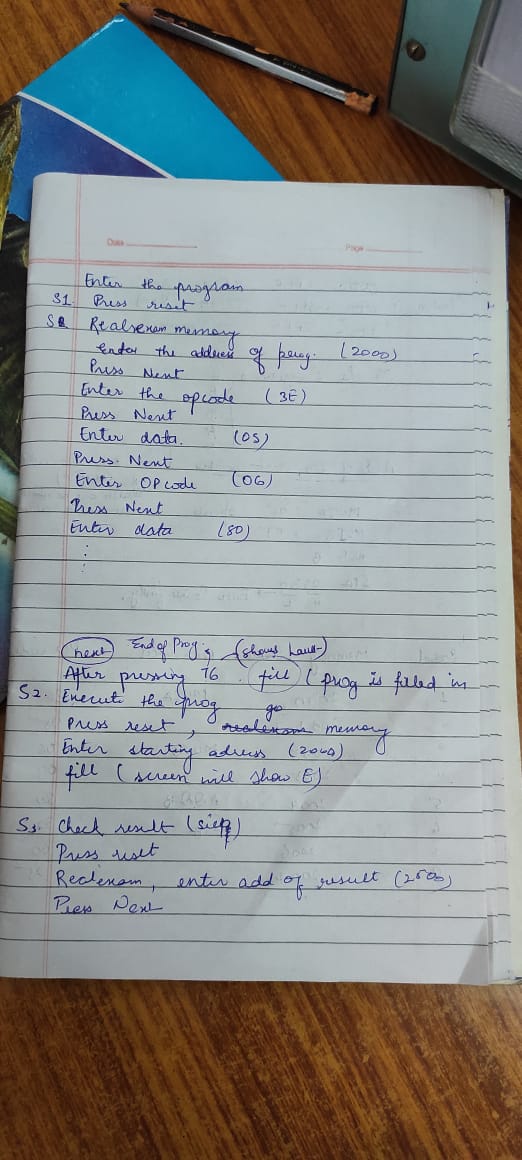 Date
Page
Enter the program
S1. Press reset
Realexam memory
enter the address of prog. (2000)
Press Next
Enter the opcode (3E)
Press Next
Enter data. (05)
Press Next
Enter OPcode (06)
Press Next
Enter data (80)
:
:
next End of Prog. (shows
After pressing 76 . fill ( prog is filled in
S2. Execute the prog
Press reset, go memory
Enter starting adress (2000)
fill ( screen will show E)
S3. Check result
Press reset
Realexam, enter add of result (2500)
Press Next